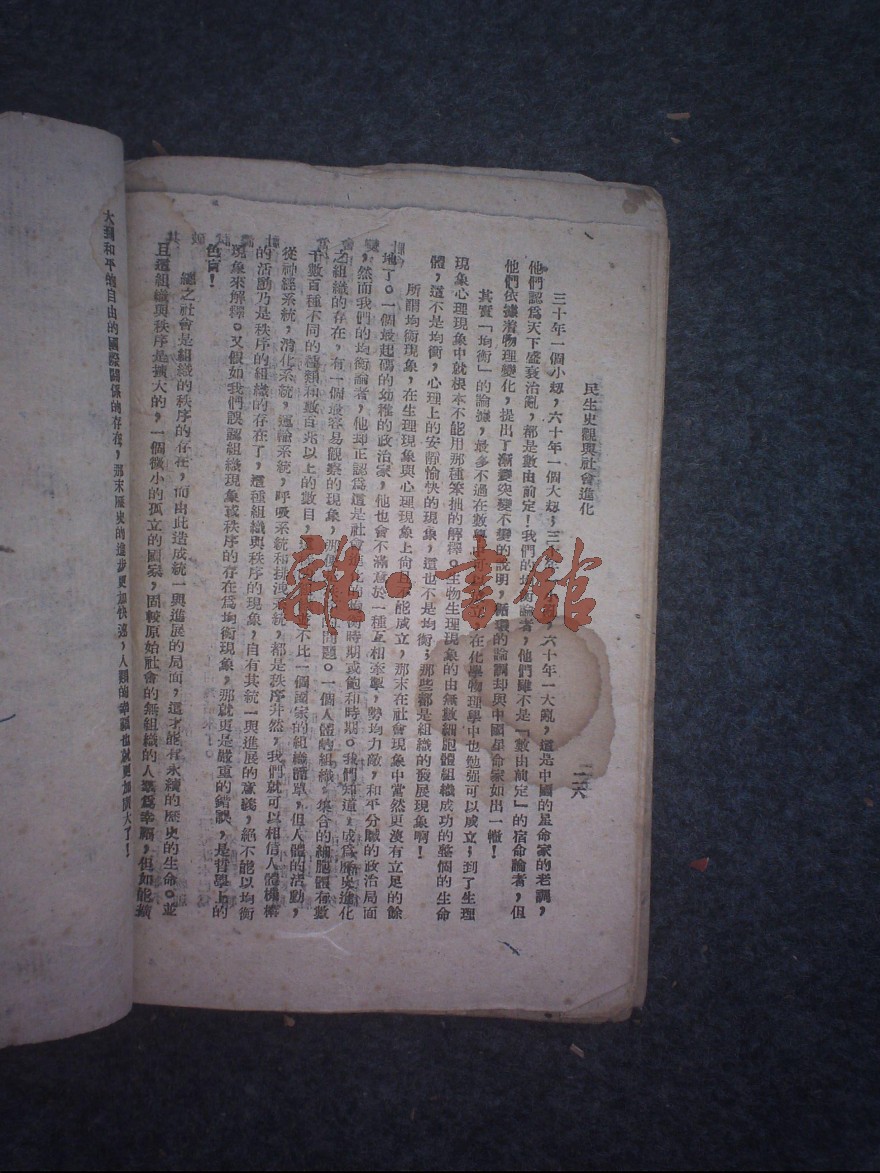 民生史觀與社會進化
二六
三十年一個小刼，六十年一個大刼，三十年一小亂，六十年一大亂，這是中國的星命家的老調，
他們認爲天下盛衰治亂，都是數由前定！我們的均衡論者，他們雖不是「數由前定」的宿命論者，但
他們依據着物理變化，提出了漸變突變不變的說明，循環的論調却與中國星命家如出一轍！
其實「均衡」的論據，最多不過在數學 可以 在化學物理學中也勉强可以成立；到了生理
現象心理現象中就根本不能用那種笨拙的解釋。生物生理現象的由無數細胞體組織成功的整個的生命
體，這不是均衡，心理上的安靜愉快的現象，這也不是均衡；那些都是組織的發展現象啊！
所謂均衡現象，在生理現象與心理現象上尙且不能成立，那末在社會現象中當然更沒有立足的餘
地了。一個最起碼的幼稚的政治家，他也會不滿意於一種互相牽掣，勢均力敵，和平分贓的政治局面
，然而我們的均衡論者，他却正認爲這是社會進化的均衡時期或飽和時期。我們知道，成爲歷史進化
之組織的存在，有一個最容易觀察的現象，那便是 問題。一個人體的組織，集合的細胞體有數
千數百種不同的種類和數百兆以上的數目， 不比一個國家的組織簡單，但人體的活動，
從神經系統，消化系統，運輸系統，呼吸系統和排洩系統，都是秩序井然，我們就可以相信人體機構
的活動乃是秩序的組織的存在了，這種組織與秩序的現象，自有其統一與進展的意義，絕不能以均衡
現象來解釋。又假如我們誤認組織現象或秩序的存在爲均衡現象，那就更是嚴重的錯誤，是哲學上的
色盲！
總之社會是組織的秩序的存在，而由此造成統一與進展的局面，這才能有永續的歷史的生命。並
且這組織與秩序是擴大的，一個微小的孤立的國家，固較原始社會的無組織的人羣爲幸福，但如能擴
大到和平的自由的國際關係的存在，那末歷史的進步更加快速，人類的幸福也就更加開大了！
雜·書館